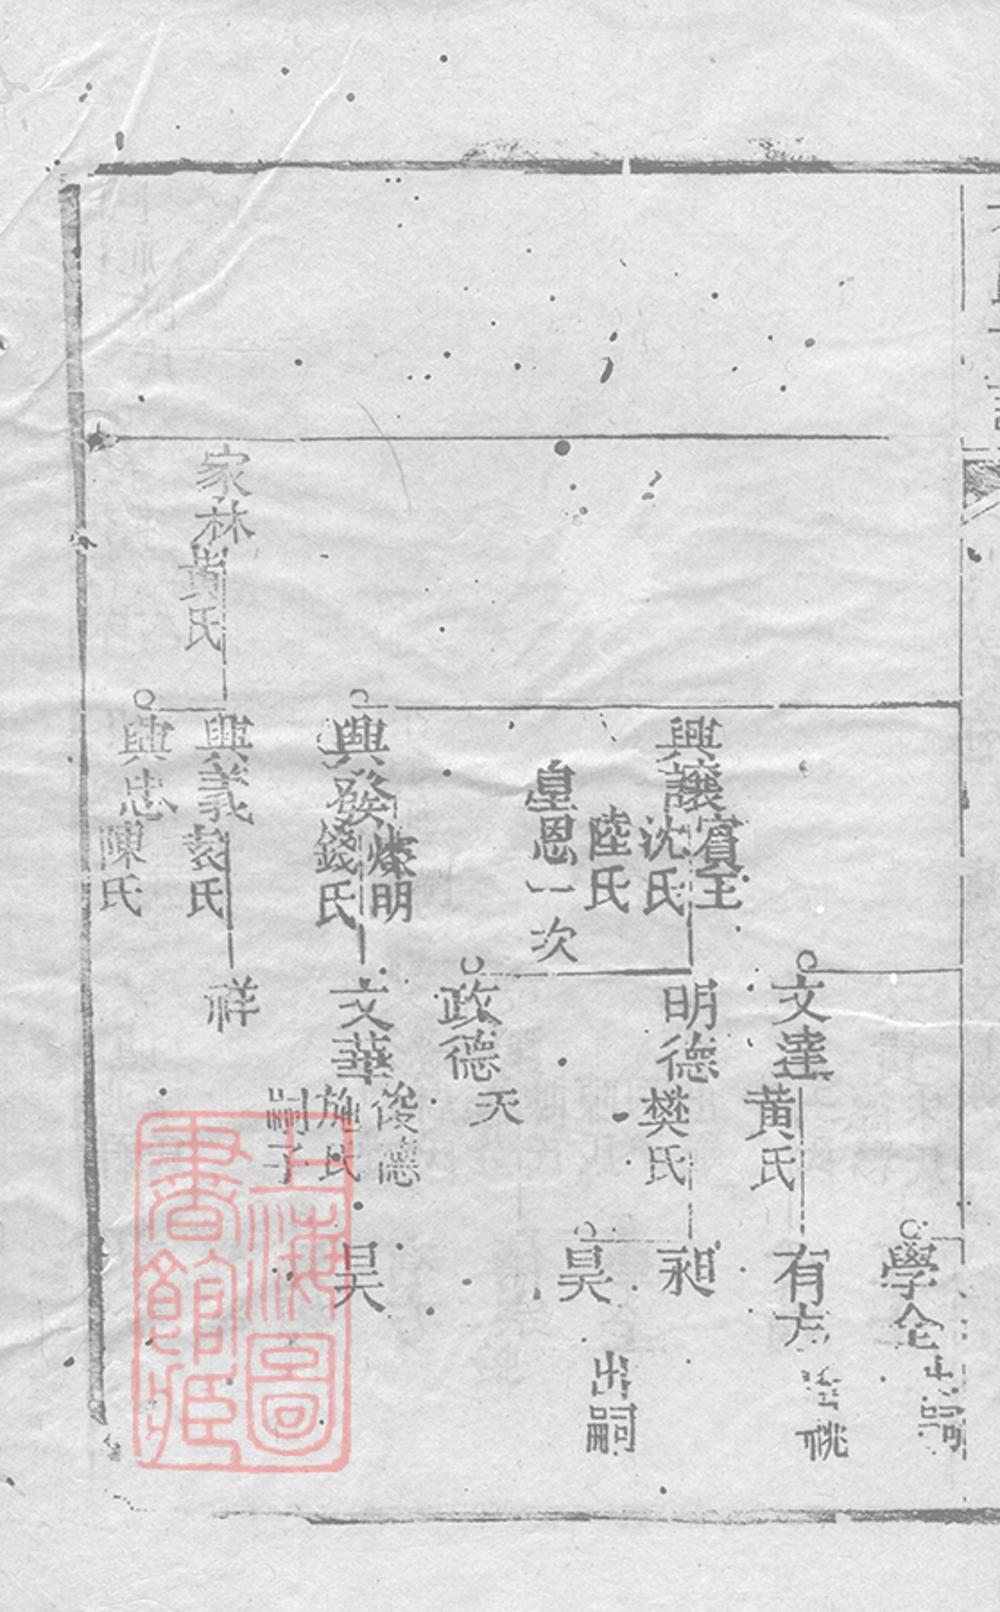 家林
黃氏
興讓
賓王
沈氏
陸氏
皇恩一次
興發
燦明
錢氏
興義
裘氏
興忠
陳氏
文達
黃氏
明德
樊氏
政德
天
文華
俊德
施氏
嗣子
祥
學仝
出嗣
有方
祧
昶
昊
出嗣
昊
上海圖
書館藏